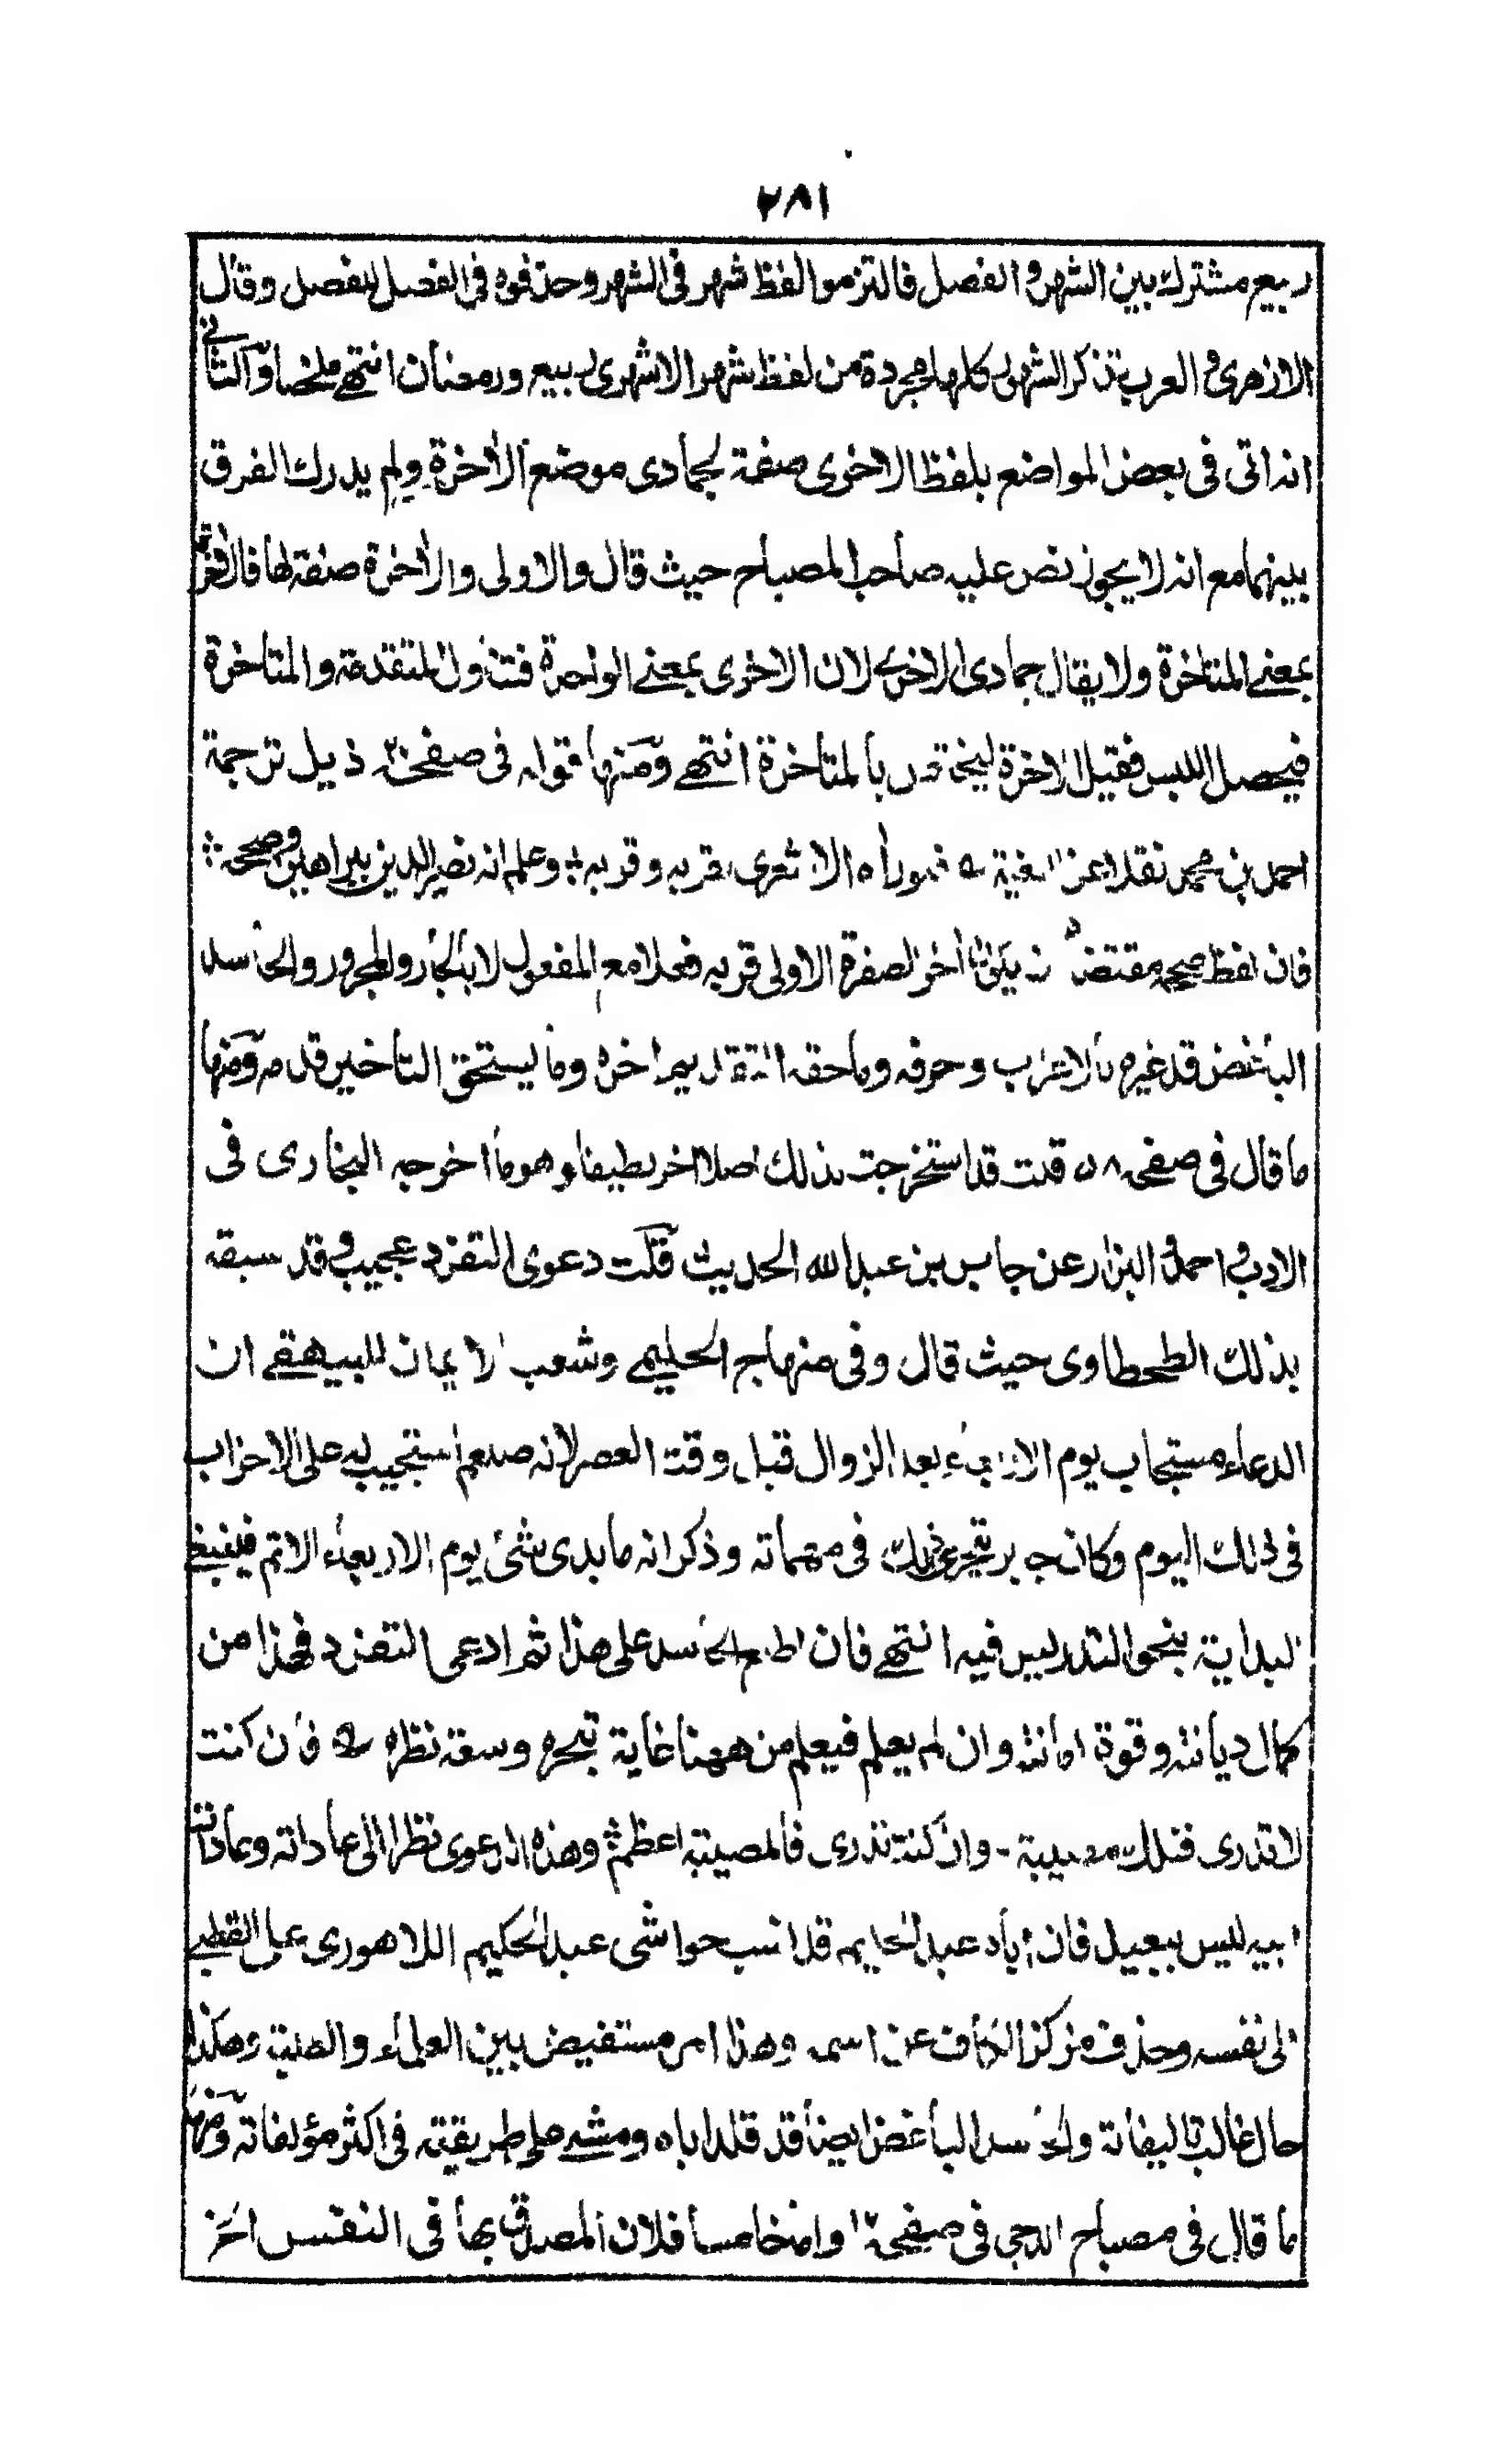 ٢٨١
ربيع مشترك بين الشهر والفصل فالتزموا لفظ شهر فى الشهر وحذفوه فى الفصل للفصل وقال
الازهرى والعرب تذكر الشهور كلها مجردة من لفظ شهر الا شهرى ربيع ورمضان انتهى ملخصا والثانى
انه اتى فى بعض المواضع بلفظ الاخرى صفة لجمادى موضع الأخرة ولم يدرك الفرق
بينهما مع انه لا يجوز نص عليه صاحب المصباح حيث قال والاولى والأخرة صفة لها فالأخرة
بمعنى المتاخرة ولا يقال جمادى الاخرى لان الاخرى بمعنى الواحدة فتتناول المتقدمة والمتاخرة
فيحصل اللبس فقيل الأخرة ليختص بالمتأخرة انتهى ومنها قوله فى صفحة ذيل ترجمة
احمد بن محمد نقلا عن ه الاشعرى قربه وقربه ؛ وعلم انه نصير الدين ببراهين وصححه ؛
فان لفظ صححه مقتض أخر الصفرة الاولى قربه فعلا مع المفعول لا بالجار والمجرور والحاسد
الباغض قد غيره بالاعراب وحرفه وما حقه التقديم اخره وما يستحق التاخير قدمه ومنها
ما قال فى صفحه ٥٨ قلت قد استخرجت لذلك اصلا اخر لطيفا وهو ما اخرجه البخارى فى
الادب واحمد والبزار عن جابر بن عبد الله الحديث قلت دعوى التفرد عجيب وقد سبقه
بذلك الطحطاوى حيث قال وفى منهاج الحليمى وشعب الايمان للبيهقى ان
الدعاء مستجاب يوم الاربعاء بعد الزوال قبل وقت العصر لانه صلعم استجيب له على الاحزاب
فى ذلك اليوم وكان جابر يتحرى ذلك فى مهماته وذكر انه ما بدى شئ يوم الاربعاء الا تم فينبغى
البداية بنحو التدريس فيه انتهى فان اطلع الحاسد على هذا ثم ادعى التفرد فهذا من
كمال ديانته وقوة امانته وان لم يعلم فيعلم من ههنا غاية تبحره وسعة نظره ه فان كنت
لا تدرى فتلك مصيبة - وان كنت تدرى فالمصيبة اعظم ؛ وهذه الدعوى نظرا الى عاداته وعادات
ابيه ليس ببعيد فان اباه عبد الحليم قد انسب حواشى عبد الحكيم اللاهورى على القطبى
الى نفسه وحذف مركز الكاف عن اسمه وهذا امر مستفيض بين العلماء والطلبة وهكذا
حال غالب تاليفاته والحاسد الباغض ايضا قد قلد اباه ومشى على طريقته فى اكثر مؤلفاته ومنها
ما قال فى مصباح الدجى فى صفحة واما خامسا فلان المصدق بها فى النفس اخر